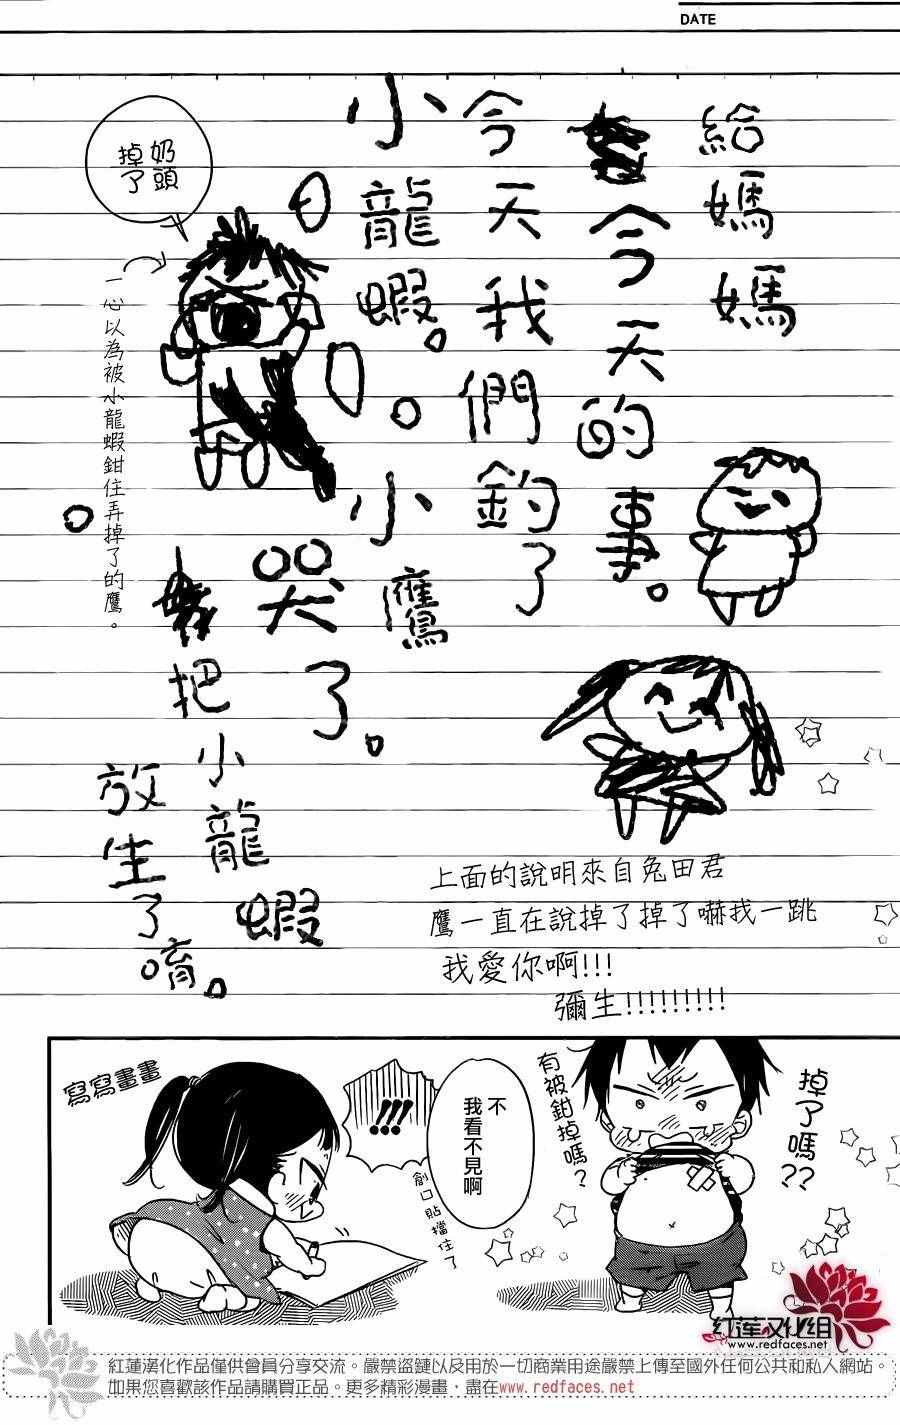 DATE
給媽媽
今天的事。
今天我們釣了
小龍蝦。。
小鷹
哭了。
把小龍蝦
放生了唷。
奶頭
掉了
一心以為被小龍蝦鉗住弄掉了的鷹。
上面的說明來自兔田君
鷹一直在說掉了掉了嚇我一跳
我愛你啊!!!
彌生!!!!!!!!!
掉了嗎??
有被鉗掉嗎?
不
我看不見啊
創口貼擋住了
!!!
寫寫畫畫
紅蓮漢化組
www.redfaces.net
紅蓮漢化作品僅供會員分享交流。嚴禁盜鏈以及用於一切商業用途嚴禁上傳至國外任何公共和私人網站。
如果您喜歡該作品請購買正品。更多精彩漫畫，盡在www.redfaces.net